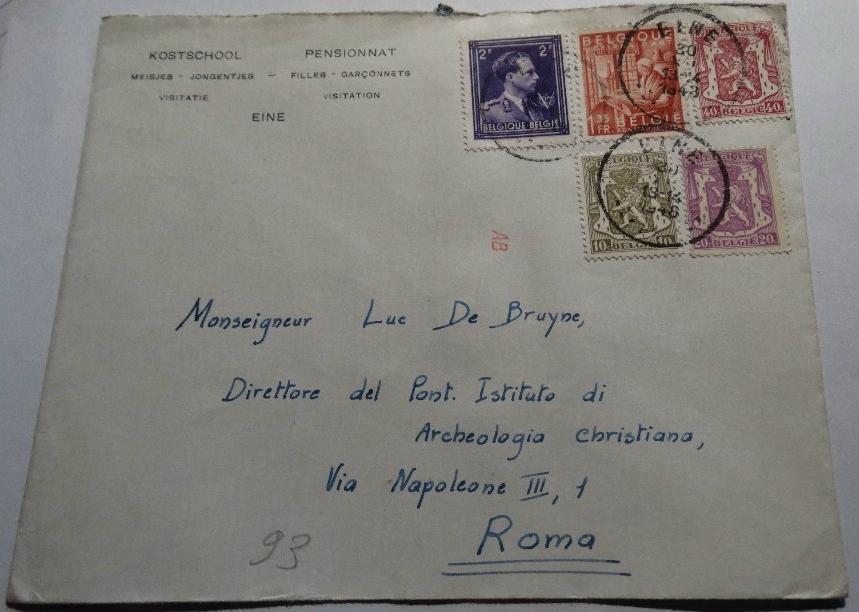 KOSTSCHOOL PENSIONNAT
MEISJES - JONGENTJES — FILLES - GARÇONNETS
VISITATIE VISITATION
EINE
2F 2F
BELGIQUE-BELGIË
BELGIQUE
1.35 FR. BELGIE
BELGIQUE
40 BELGIE 40
BELGIQUE
10 BELGIE 10
BELGIQUE
20 BELGIE 20
EINE
20
13-14
EINE
20
13-14
AB
Monseigneur Luc De Bruyne,
Direttore del Pont. Istituto di
Archeologia Christiana,
Via Napoleone III, 1
Roma
93